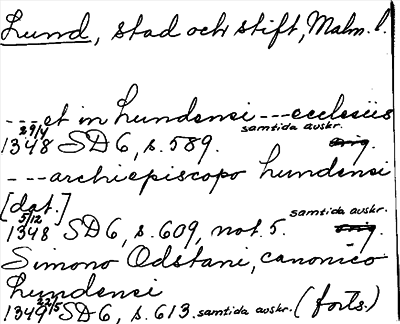 Lund, stad och stift, Malm. l.
---et in Lundensi---ecclesiis
29/4 samtida avskr.
1348 SD 6, s. 589. orig.
---archiepiscopo Lundensi
[dat.]
5/12 samtida avskr.
1348 SD 6, s. 609, not. 5. orig.
Simono Odstani, canonico
Lundensi
22/5
1349 SD 6, s. 613. samtida avskr. (forts.)